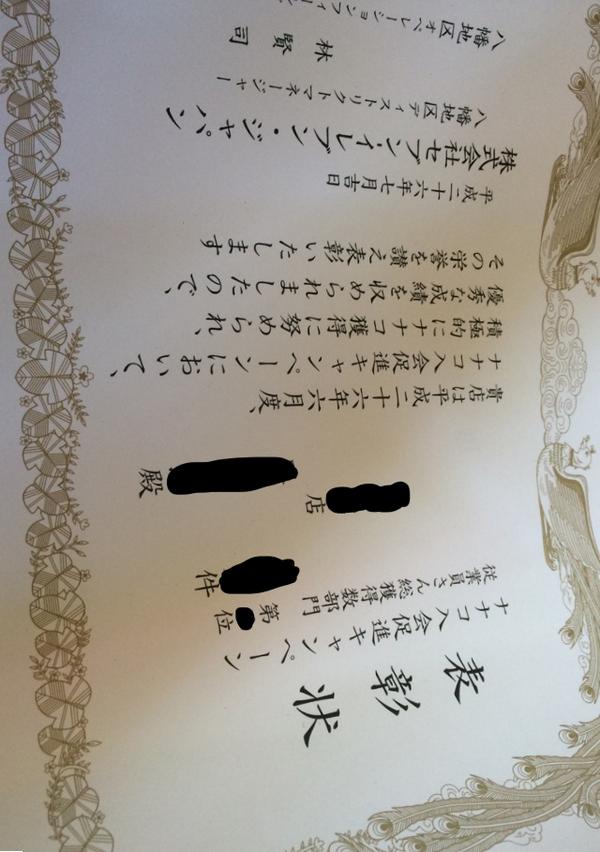 表彰状
ナナコ入会促進キャンペーン
従業員さん総獲得数部門 第 位
件
店
殿
貴店は平成二十六年六月度、
ナナコ入会促進キャンペーンにおいて、
積極的にナナコ獲得に努められ、
優秀な成績を収められましたので、
その栄誉を讃え表彰いたします
平成二十六年七月吉日
株式会社セブン-イレブン・ジャパン
八幡地区ディストリクトマネージャー
林 賢 司
八幡地区オペレーションフィー